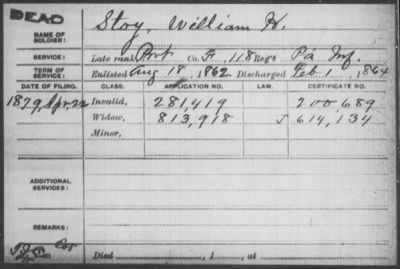 DEAD
NAME OF SOLDIER: Stoy, William H.
SERVICE: Late rank, Pvt Co. F, 118 Reg't Pa Inf.
TERM OF SERVICE: Enlisted Aug 18, 1862 Discharged Feb 1, 1864
DATE OF FILING. CLASS. APPLICATION NO. LAW. CERTIFICATE NO.
1879, Apr. 22 Invalid, 281,419 200,689
Widow, 813,918 614,134
Minor,
ADDITIONAL SERVICES:
REMARKS:
Died, 1, at